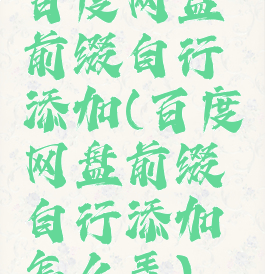 百度网盘
前缀自行
添加(百度
网盘前缀
自行添加
怎么弄)